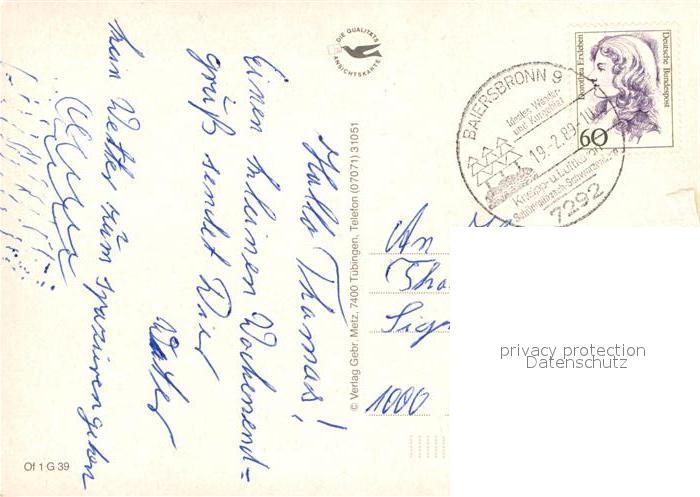 Hallo Thomas!
Einen kleinen Wochenend=
gruß sendet Dir
Vater
kein Wetter zum spazierengehen
DIE QUALITÄTS
ANSICHTSKARTE
© Verlag Gebr. Metz, 7400 Tübingen, Telefon (07071) 31051
Of 1 G 39
BAIERSBRONN 9
Ideales Wander-
und Kurgebiet
19.-2.89.-10
Kneipp- u. Luftkurort
Schönmünzach-Schwarzenberg
7292
Dorothea Erxleben
Deutsche Bundespost
60
An
Tho
1000
privacy protection
Datenschutz